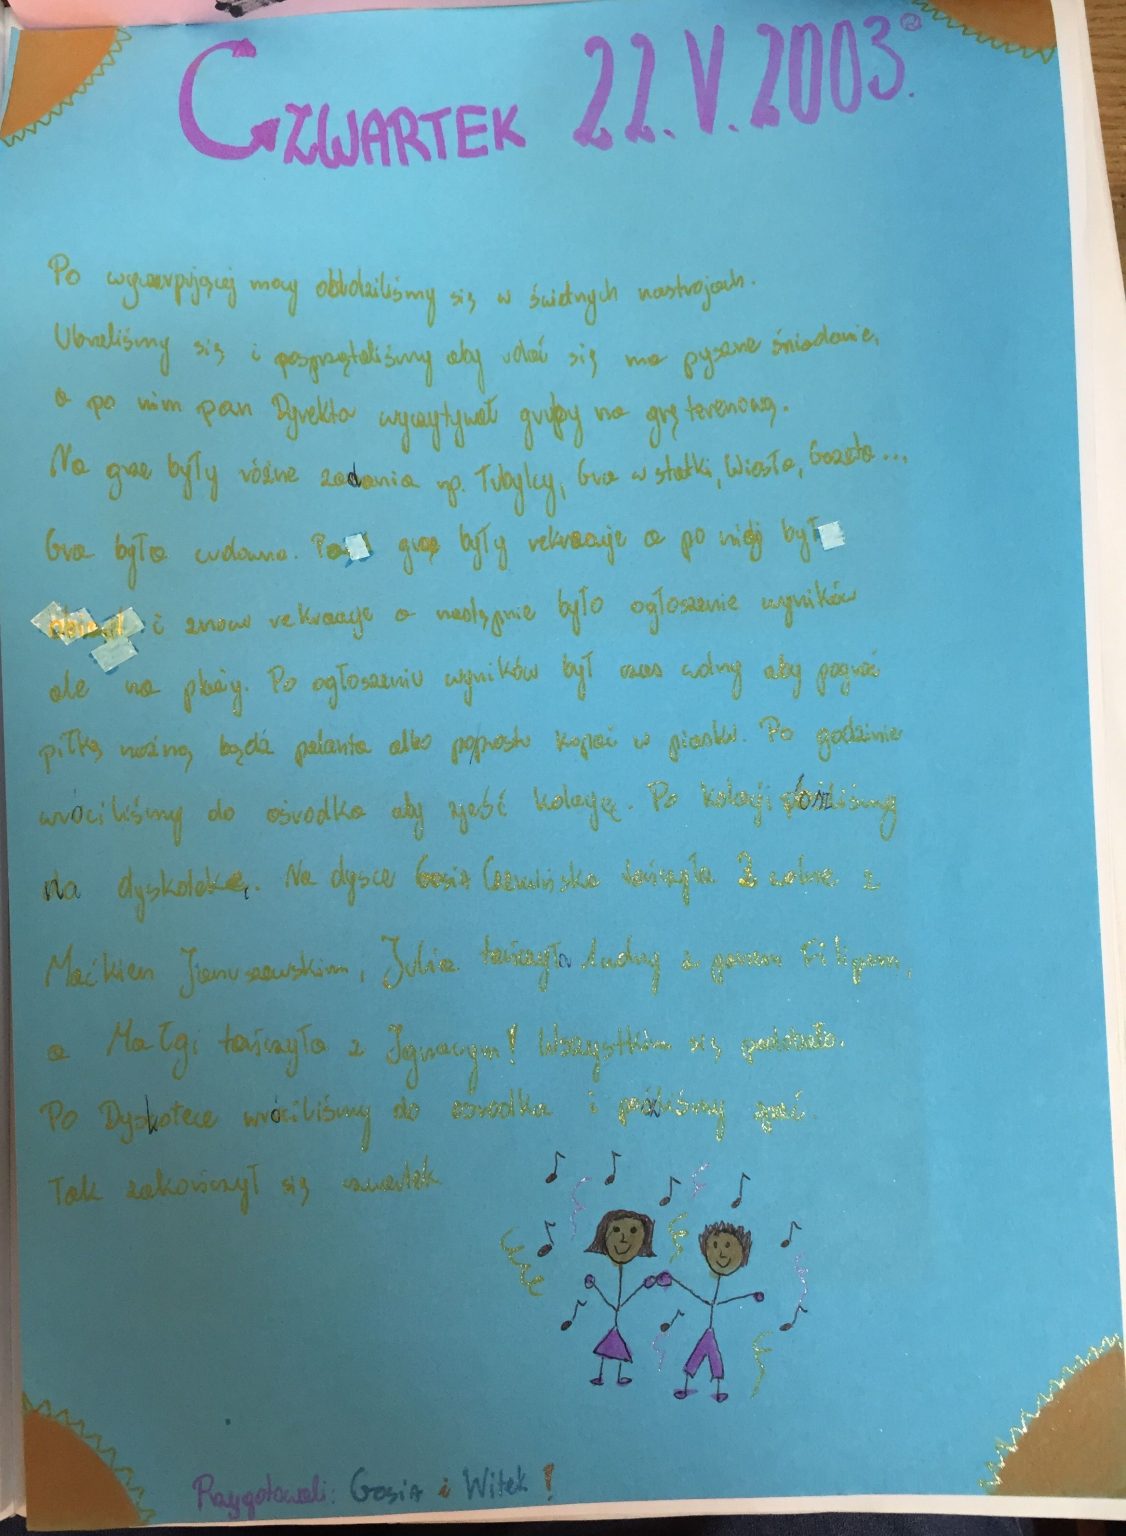 CZWARTEK 22.V.2003.
Po wyczerpującej nocy obudziliśmy się w świetnych nastrojach.
Ubraliśmy się i posprzątaliśmy aby udać się na pyszne śniadanie,
a po nim pan Dyrektor wyczytywał grupy na grę terenową.
Na grze były różne zadania np. Tubylcy, Gra w statki, Wiosła, Gazeta...
Gra była cudowna. Po grze były rekreacje a po niej był
i znow rekreacje a następnie było ogłoszenie wyników
ale na plaży. Po ogłoszeniu wyników był czas wolny aby pograć
piłką nożną bądź palanta albo poprostu kopać w piasku. Po godzinie
wróciliśmy do ośrodka aby zjeść kolację. Po kolacji poszliśmy
na dyskotekę. Na dysce Gosia Czerwińska tańczyła 2 wolne z
Maćkiem Januszewskim, Julia tańczyła z panem Filipem,
a Małgi tańczyła z Ignacym! Wszystkim się podobało.
Po Dyskotece wróciliśmy do ośrodka i poszliśmy spać.
Tak zakończył się czwartek
Przygotowali: Gosia i Witek!